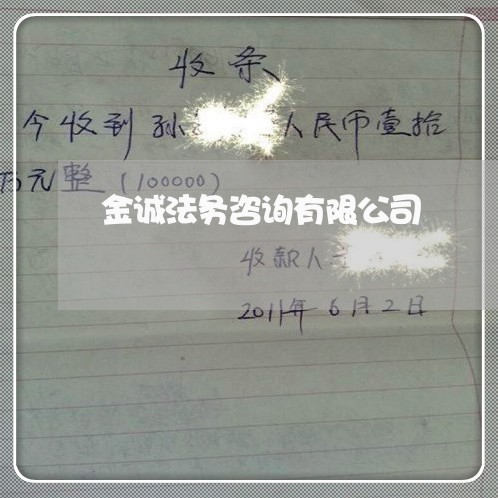 收条
今收到孙 人民币壹拾
万元整(100000)
金诚法务咨询有限公司
收款人
2011年6月2日